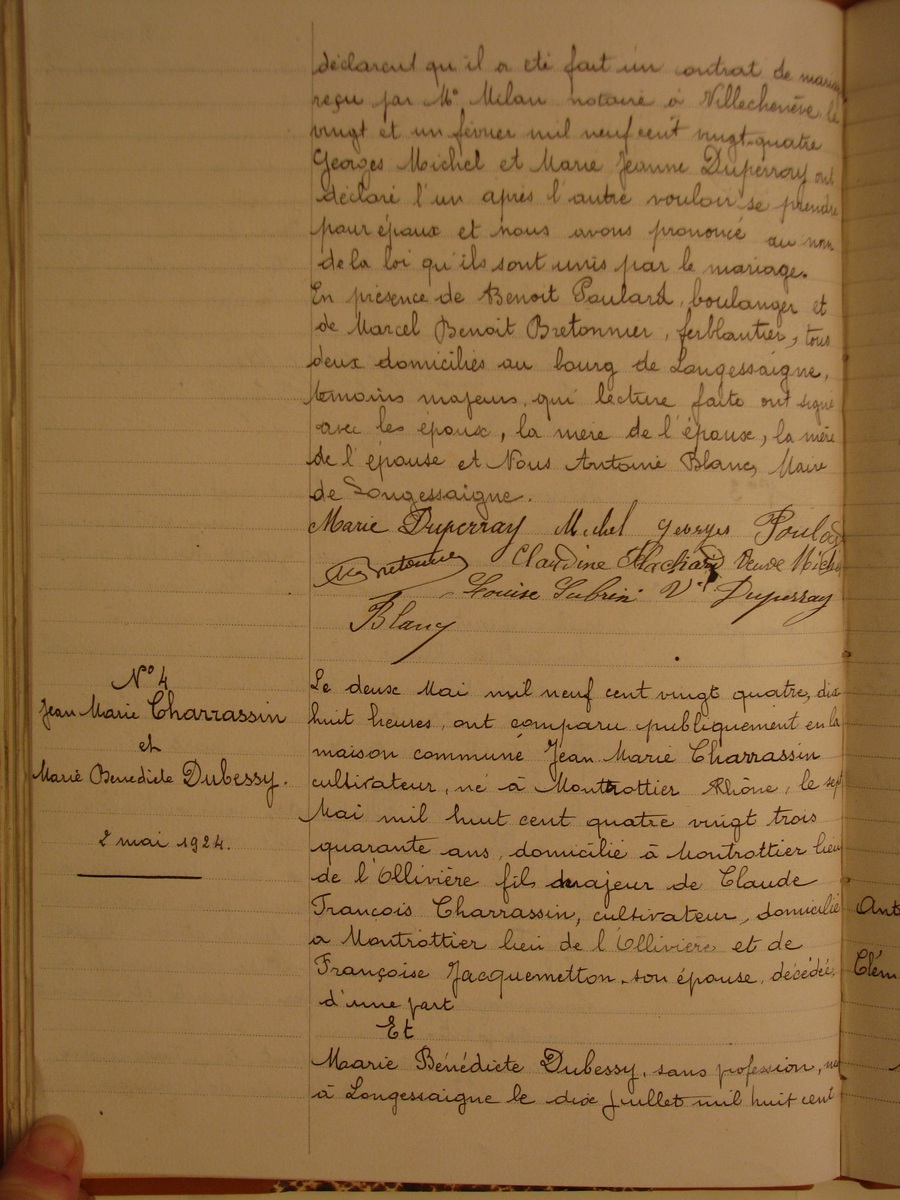 déclarent qu'il a eté fait un contrat de mariage
reçu par Me Milan notaire à Villechenève, le
vingt et un février mil neuf cent vingt-quatre
Georges Michel et Marie Jeanne Duperray ont
déclaré l'un après l'autre vouloir se prendre
pour époux et nous avons prononcé au nom
de la loi qu'ils sont unis par le mariage.
En présence de Benoit Poulard, boulanger et
de Marcel Benoit Bretonnier, ferblantier, tous
deux domiciliés au bourg de Longessaigne,
témoins majeurs, qui lecture faite ont signé
avec les époux, la mère de l'époux, la mère
de l'épouse et Nous Antoine Blanc, Maire
de Longessaigne.
Marie Duperray Michel Georges Poulard
Bretonnier Claudine Veuve Michel
Louise Subrin Vve Duperray
Blanc
No 4
Jean Marie Charrassin
et
Marie Bénédicte Dubessy.
2 mai 1924.
Le deux Mai mil neuf cent vingt quatre, dix
huit heures, ont comparu publiquement en la
maison commune Jean Marie Charrassin
cultivateur, né à Montrottier Rhône, le sept
Mai mil huit cent quatre vingt trois
quarante ans, domicilié à Montrottier lieu
de l'Ollivière fils majeur de Claude
François Charrassin, cultivateur, domicilié
à Montrottier lieu de l'Ollivière et de
Françoise Jacquemetton, son épouse, décédée,
d'une part
Et
Maarie Bénédicte Dubessy, sans profession, née
à Longessaigne le dix Juillet mil huit cent
Ant
Clém